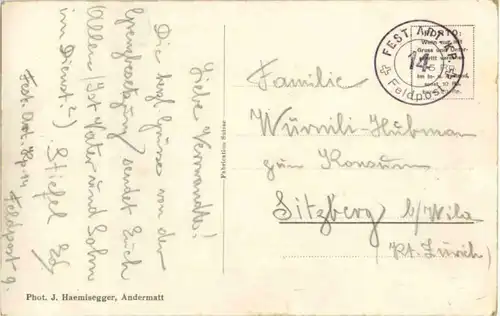 Liebe Verwandte!
Die herzl. Grüsse von der
Grenzbesetzung sendet Euch
Allen! Ist Vater und Sohn
im Dienst?) Stiefel Ed
Fest. Art. Kp. 14
Feldpost 9.
Fabrication Suisse
FEST. ART. KP.
14
Feldpost
PORTO:
Gruss und
5 Rp.
Familie
Würmli-Hubmann
zum Konsum
Sitzberg b/Wila
(Kt. Zürich)
Phot. J. Haemisegger, Andermatt